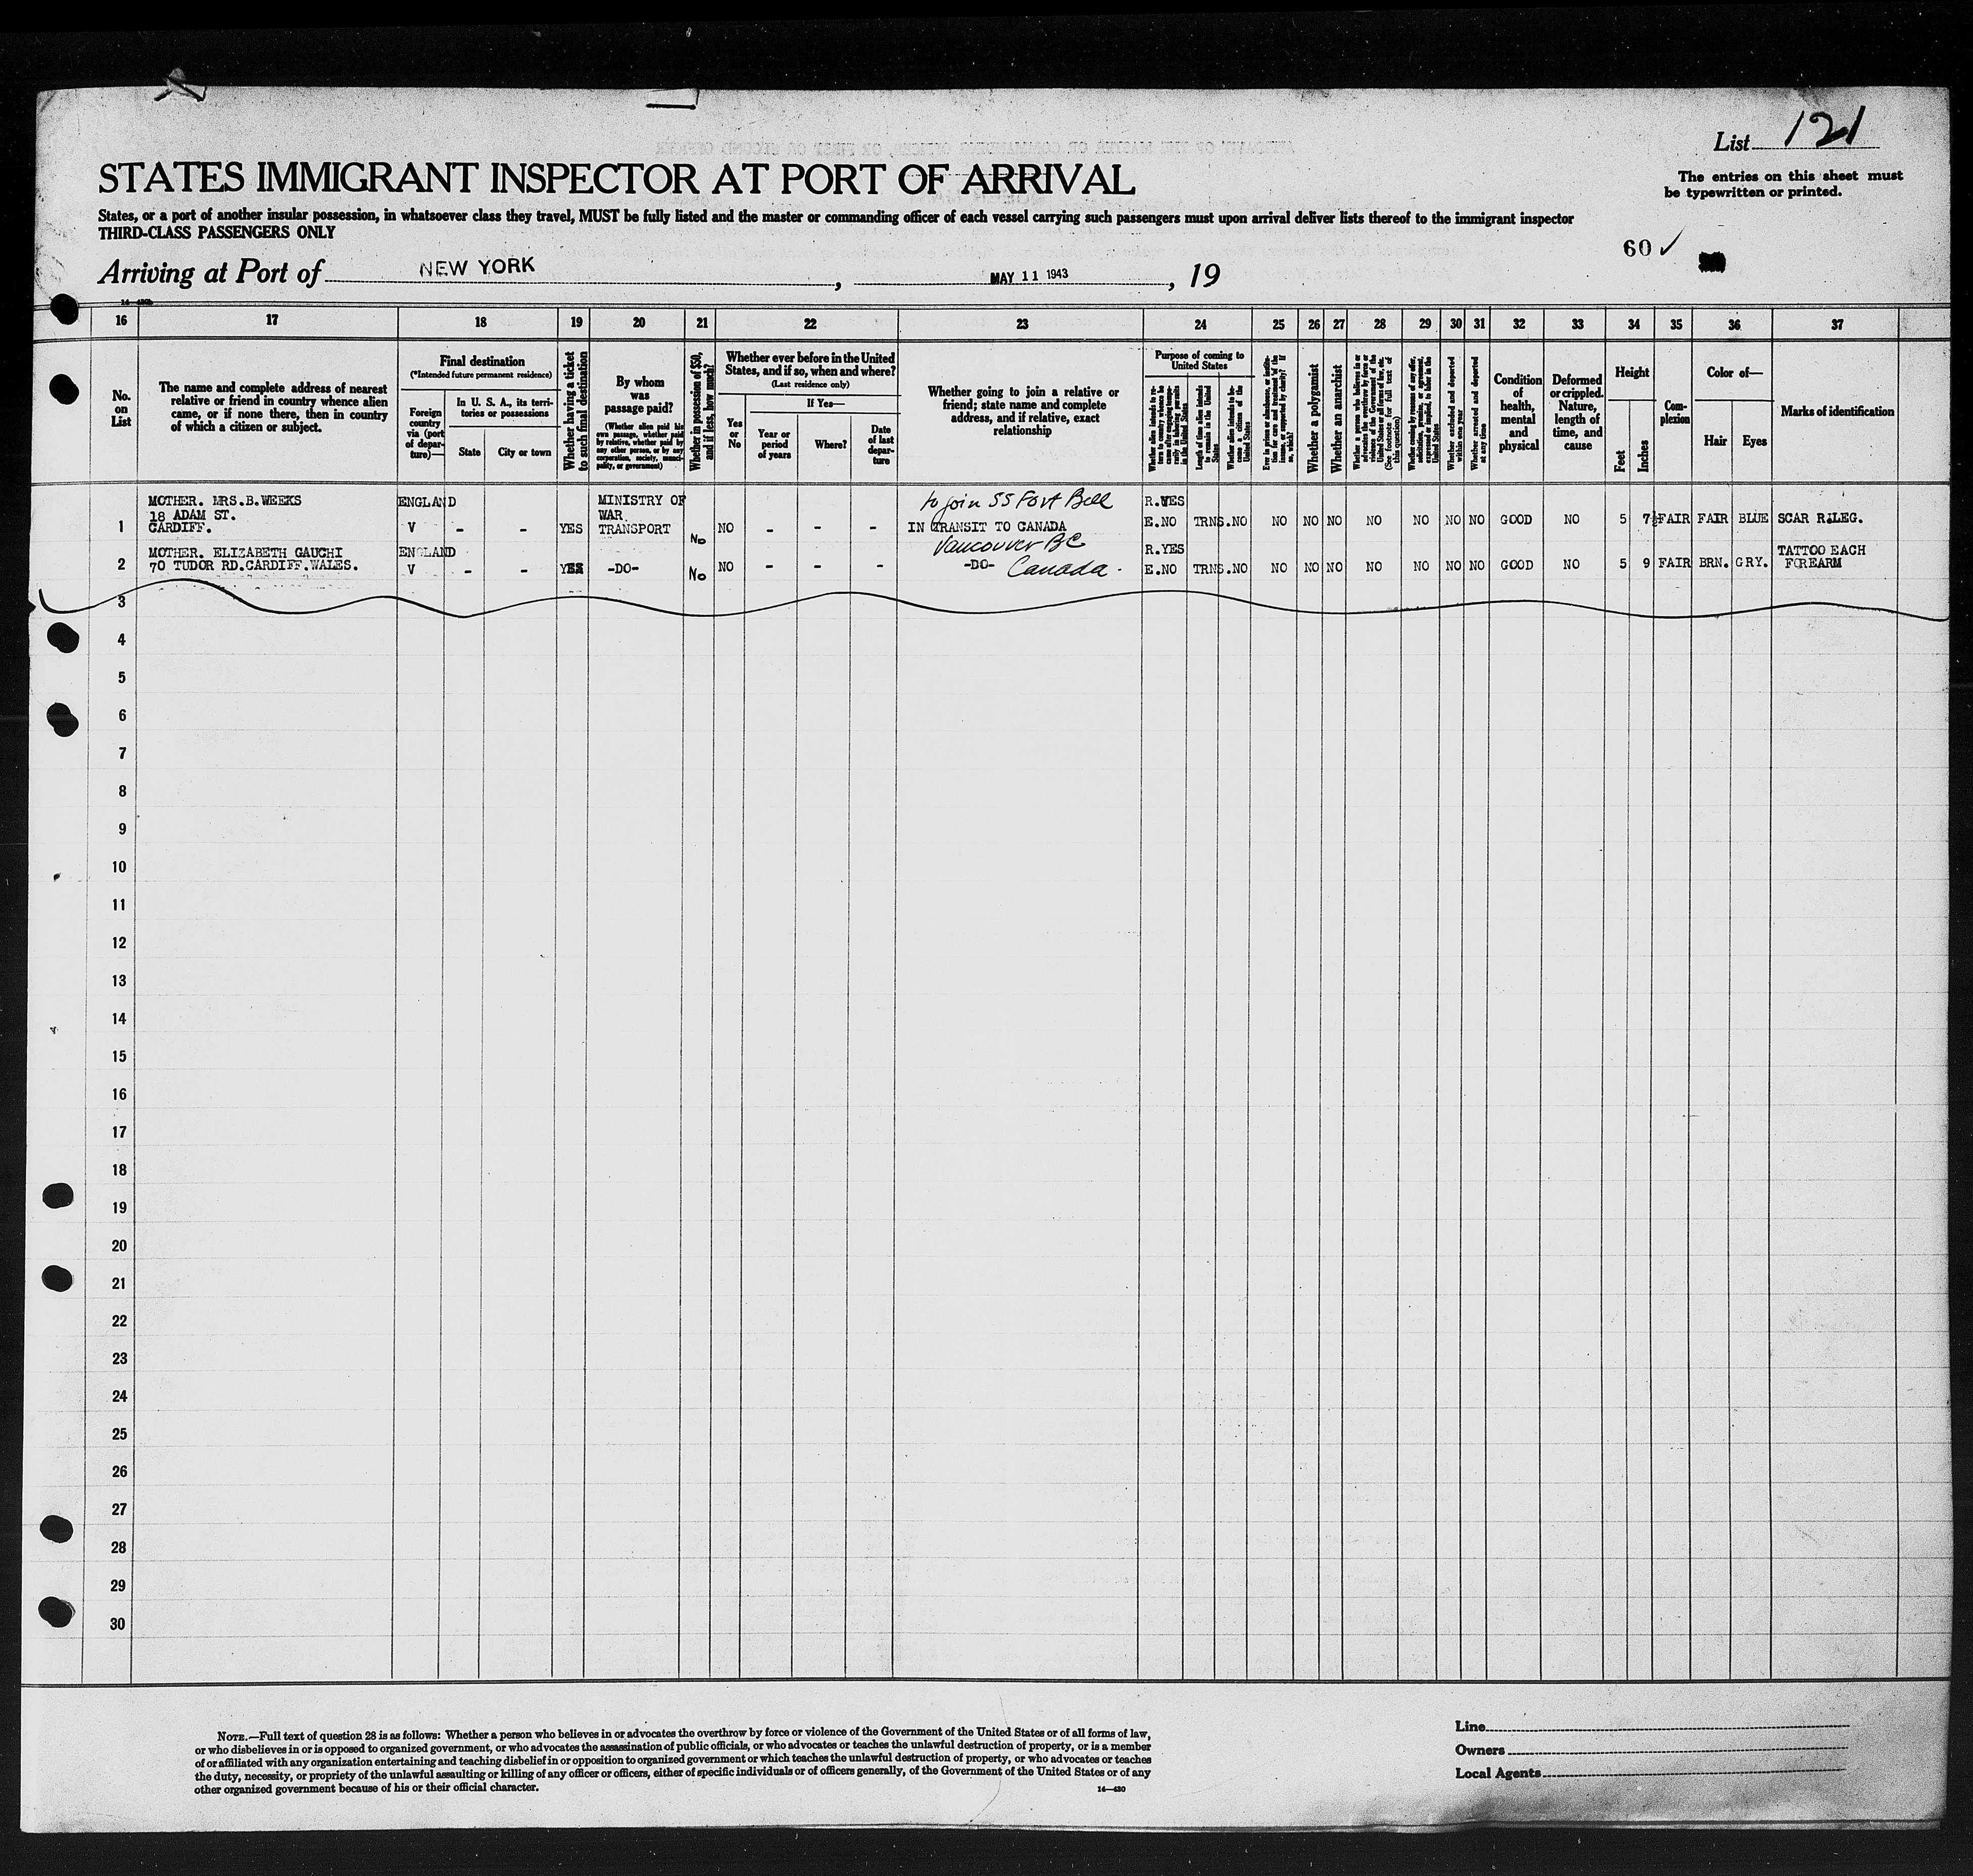 List 121
STATES IMMIGRANT INSPECTOR AT PORT OF ARRIVAL
The entries on this sheet must
be typewritten or printed.
States, or a port of another insular possession, in whatsoever class they travel, MUST be fully listed and the master or commanding officer of each vessel carrying such passengers must upon arrival deliver lists thereof to the immigrant inspector
THIRD-CLASS PASSENGERS ONLY
60 ✓
Arriving at Port of NEW YORK, MAY 11 1943, 19
16 17 18 19 20 21 22 23 24 25 26 27 28 29 30 31 32 33 34 35 36 37
No. on List
The name and complete address of nearest
relative or friend in country whence alien
came, or if none there, then in country
of which a citizen or subject.
Final destination
(*Intended future permanent residence)
Foreign
country
via (port
of depar-
ture)—
In U. S. A., its terri-
tories or possessions
State
City or town
Whether having a ticket
to such final destination
By whom
was
passage paid?
(Whether alien paid his
own passage, whether paid
by relative, whether paid by
any other person, or by any
corporation, society, munici-
pality, or government)
Whether in possession of $50,
and if less, how much?
Whether ever before in the United
States, and if so, when and where?
(Last residence only)
Yes
or
No
If Yes—
Year or
period
of years
Where?
Date
of last
depar-
ture
Whether going to join a relative or
friend; state name and complete
address, and if relative, exact
relationship
Purpose of coming to
United States
Length of time alien intends
to remain in the United
States
Whether alien intends to be-
come a citizen of the
United States
Whether a polygamist
Whether an anarchist
Whether excluded and deported
within one year
Whether arrested and deported
at any time
Condition
of
health,
mental
and
physical
Deformed
or crippled.
Nature,
length of
time, and
cause
Height
Feet
Inches
Com-
plexion
Color of—
Hair
Eyes
Marks of identification
MOTHER. MRS.B.WEEKS ENGLAND MINISTRY OF to join SS Fort Bell R.YES
18 ADAM ST. WAR
1 CARDIFF. V - - YES TRANSPORT No NO - - - IN TRANSIT TO CANADA E.NO TRNS.NO NO NO NO NO NO NO NO GOOD NO 5 7½ FAIR FAIR BLUE SCAR R.LEG.
Vancouver BC
MOTHER. ELIZABETH GAUCHI ENGLAND R.YES TATTOO EACH
2 70 TUDOR RD.CARDIFF.WALES. V - - YES -DO- No NO - - - -DO- Canada. E.NO TRNS.NO NO NO NO NO NO NO NO GOOD NO 5 9 FAIR BRN. GRY. FOREARM
3
4
5
6
7
8
9
10
11
12
13
14
15
16
17
18
19
20
21
22
23
24
25
26
27
28
29
30
NOTE.—Full text of question 28 is as follows: Whether a person who believes in or advocates the overthrow by force or violence of the Government of the United States or of all forms of law,
or who disbelieves in or is opposed to organized government, or who advocates the assassination of public officials, or who advocates or teaches the unlawful destruction of property, or is a member
of or affiliated with any organization entertaining and teaching disbelief in or opposition to organized government or which teaches the unlawful destruction of property, or who advocates or teaches
the duty, necessity, or propriety of the unlawful assaulting or killing of any officer or officers, either of specific individuals or of officers generally, of the Government of the United States or of any
other organized government because of his or their official character.
14—430
Line
Owners
Local Agents